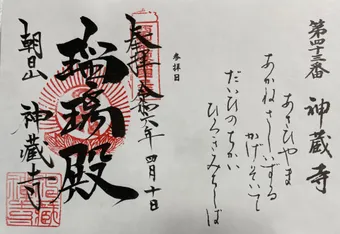 第四十三番 神蔵寺
あさひやま
あかねさしいずる
かげそいて
だいひのちかい
ひろきみちしば
参拝日
奉拝 令和六年 四月十日
瑠璃殿
朝日山 神蔵寺